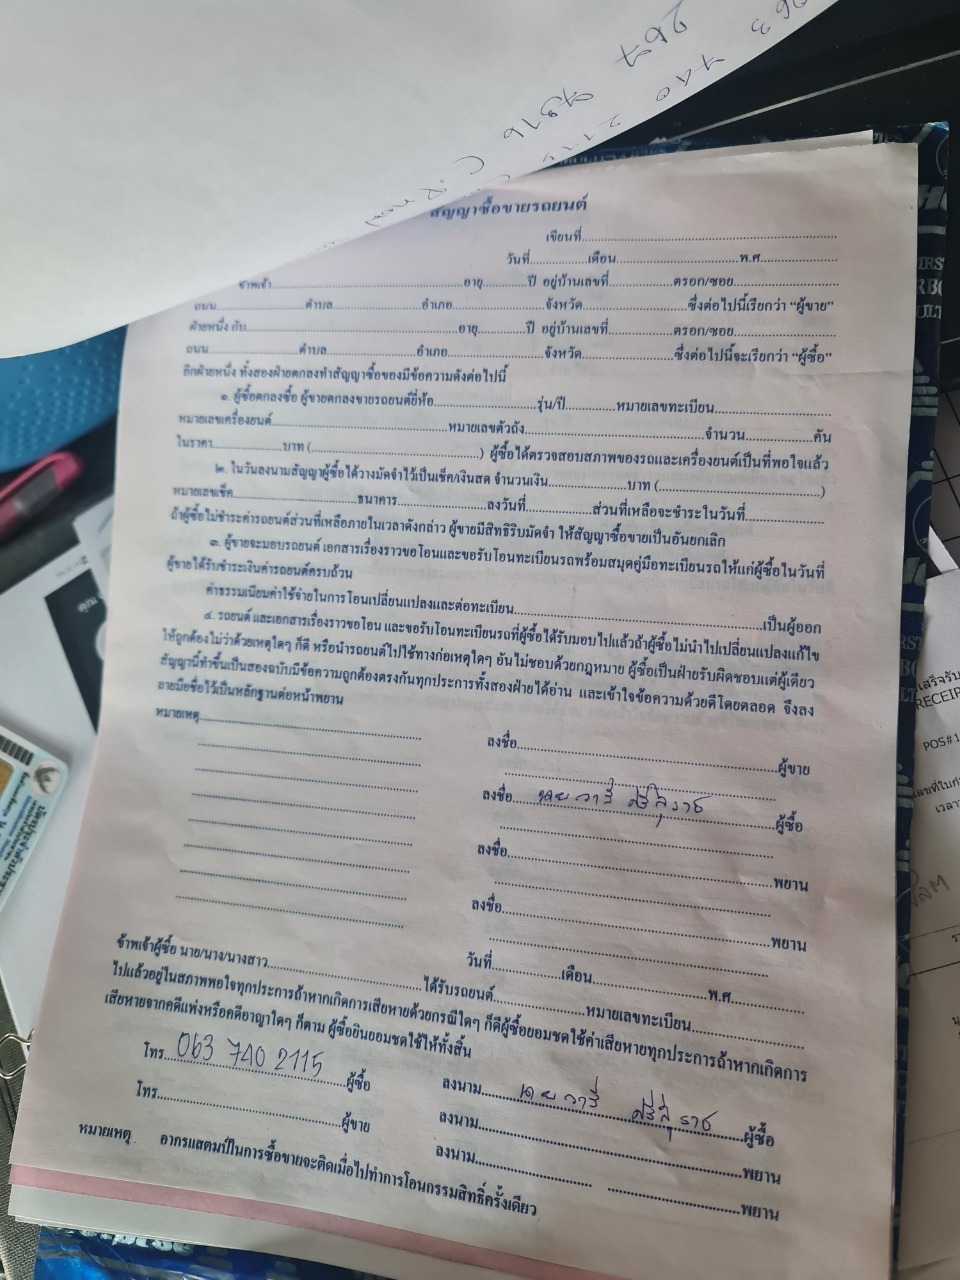 สัญญาซื้อขายรถยนต์
เขียนที่
วันที่ เดือน พ.ศ.
ข้าพเจ้า อายุ ปี อยู่บ้านเลขที่ ตรอก/ซอย
ถนน ตำบล อำเภอ จังหวัด ซึ่งต่อไปนี้เรียกว่า “ผู้ขาย”
ฝ่ายหนึ่ง กับ อายุ ปี อยู่บ้านเลขที่ ตรอก/ซอย
ถนน ตำบล อำเภอ จังหวัด ซึ่งต่อไปนี้จะเรียกว่า “ผู้ซื้อ”
อีกฝ่ายหนึ่ง ทั้งสองฝ่ายตกลงทำสัญญาซื้อของมีข้อความดังต่อไปนี้
๑. ผู้ซื้อตกลงซื้อ ผู้ขายตกลงขายรถยนต์ยี่ห้อ รุ่น/ปี หมายเลขทะเบียน
หมายเลขเครื่องยนต์ หมายเลขตัวถัง จำนวน คัน
ในราคา บาท ( ) ผู้ซื้อได้ตรวจสอบสภาพของรถและเครื่องยนต์เป็นที่พอใจแล้ว
๒. ในวันลงนามสัญญาผู้ซื้อได้วางมัดจำไว้เป็นเช็ค/เงินสด จำนวนเงิน บาท ( )
หมายเลขเช็ค ธนาคาร ลงวันที่ ส่วนที่เหลือจะชำระในวันที่
ถ้าผู้ซื้อไม่ชำระค่ารถยนต์ส่วนที่เหลือภายในเวลาดังกล่าว ผู้ขายมีสิทธิริบมัดจำ ให้สัญญาซื้อขายเป็นอันยกเลิก
๓. ผู้ขายจะมอบรถยนต์ เอกสารเรื่องราวขอโอนและขอรับโอนทะเบียนรถพร้อมสมุดคู่มือทะเบียนรถให้แก่ผู้ซื้อในวันที่
ผู้ขายได้รับชำระเงินค่ารถยนต์ครบถ้วน
ค่าธรรมเนียมค่าใช้จ่ายในการโอนเปลี่ยนแปลงและต่อทะเบียน เป็นผู้ออก
๔. รถยนต์ และเอกสารเรื่องราวขอโอน และขอรับโอนทะเบียนรถที่ผู้ซื้อได้รับมอบไปแล้วถ้าผู้ซื้อไม่นำไปเปลี่ยนแปลงแก้ไข
ให้ถูกต้องไม่ว่าด้วยเหตุใดๆ ก็ดี หรือนำรถยนต์ไปใช้ทางก่อเหตุใดๆ อันไม่ชอบด้วยกฎหมาย ผู้ซื้อเป็นฝ่ายรับผิดชอบแต่ผู้เดียว
สัญญานี้ทำขึ้นเป็นสองฉบับมีข้อความถูกต้องตรงกันทุกประการทั้งสองฝ่ายได้อ่าน และเข้าใจข้อความด้วยดีโดยตลอด จึงลง
ลายมือชื่อไว้เป็นหลักฐานต่อหน้าพยาน
หมายเหตุ
ลงชื่อ ผู้ขาย
ลงชื่อ ผู้ซื้อ
ลงชื่อ พยาน
ลงชื่อ พยาน
วันที่ เดือน พ.ศ.
ข้าพเจ้าผู้ซื้อ นาย/นาง/นางสาว ได้รับรถยนต์ หมายเลขทะเบียน
ไปแล้วอยู่ในสภาพพอใจทุกประการถ้าหากเกิดการเสียหายด้วยกรณีใดๆ ก็ดีผู้ซื้อยอมชดใช้ค่าเสียหายทุกประการถ้าหากเกิดการ
เสียหายจากคดีแพ่งหรือคดีอาญาใดๆ ก็ตาม ผู้ซื้อยินยอมชดใช้ให้ทั้งสิ้น
โทร. 063 740 2115 ผู้ซื้อ ลงนาม ผู้ซื้อ
โทร. ผู้ขาย ลงนาม พยาน
ลงนาม พยาน
หมายเหตุ อากรแสตมป์ในการซื้อขายจะติดเมื่อไปทำการโอนกรรมสิทธิ์ครั้งเดียว
RECEIP
POS#1